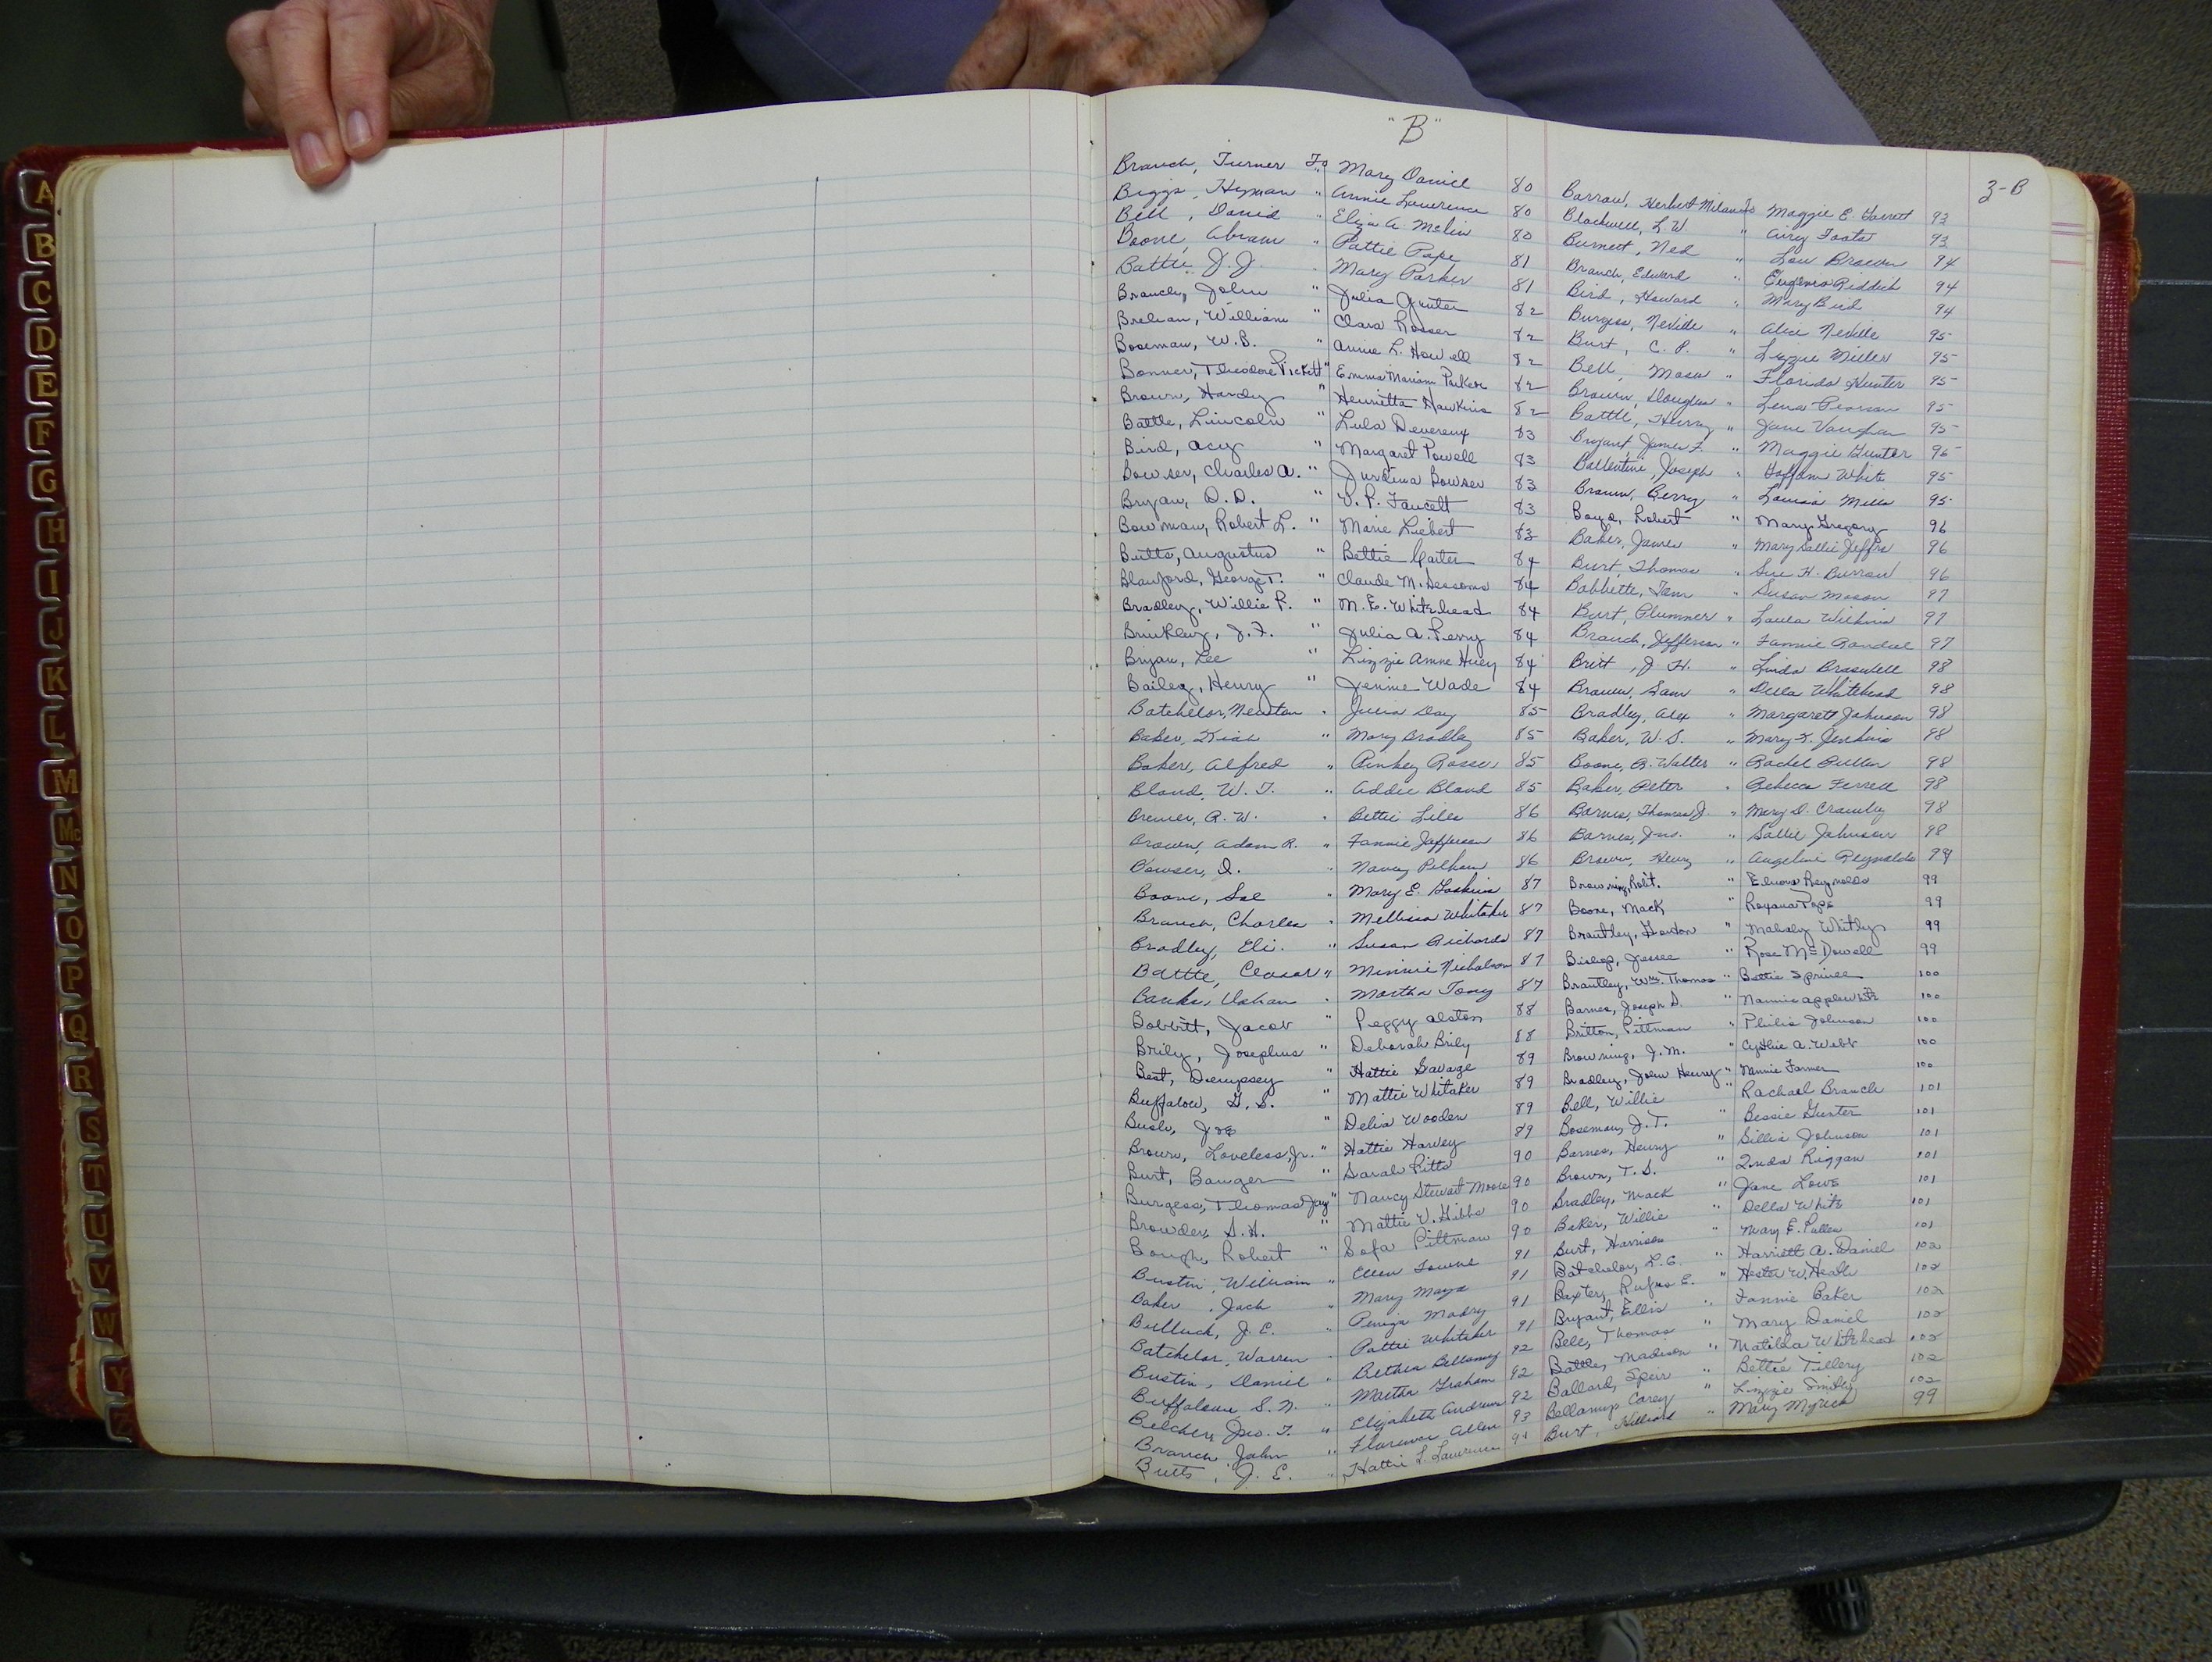 A
B
C
D
E
F
G
H
I
J
K
L
M
Mc
N
O
P
Q
R
S
T
U
V
W
Y
Z
"B"
3-B
Branch, Turner To Mary Daniel 80
Biggs, Hyman " Annie Lawrence 80
Bell, David " Eliza A. Melin 80
Boone, Abram " Pattie Pope 81
Battle J.J. " Mary Parker 81
Branch, John " Julia Gunter 82
Brehan, William " Clara Rosser 82
Boseman, W.B. " Annie L. Howell 82
Bonner, Theodore Pickett " Emma Mariam Parker 82
Brown, Hardy " Henrietta Hawkins 82
Battle, Lincoln " Lula Devereux 83
Bird, Acy " Margaret Powell 83
Bowser, Charles A. " Jurdena Bowser 83
Bryan, D.D. " V.P. Faucett 83
Bowman, Robert L. " Marie Liebert 83
Butts, Augustus " Bettie Gaiter 84
Blanford, George T. " Claude M. Sessoms 84
Bradley, Willie P. " M.E. Whitehead 84
Brinkley, J.F. " Julia A. Perry 84
Bryan, Lee " Lizzie Anne Huey 84
Bailey, Henry " Jennie Wade 84
Batchelor, Newston " Julia Day 85
Baker, Kias " Mary Bradley 85
Baker, Alfred " Pinkey Rosser 85
Bland, W.T. " Addie Bland 85
Brewer, R.W. " Bettie Liles 86
Brown, Adam R. " Fannie Jefferson 86
Bowser, D. " Nancy Pelham 86
Boone, Sol " Mary E. Hoskins 87
Branch, Charles " Mellissa Whitaker 87
Bradley, Eli. " Susan Richards 87
Battle, Ceasar " Minnie Nicholson 87
Banks, Urban " Martha Tony 87
Bobbitt, Jacob " Peggy Alston 88
Brily, Josephus " Deborah Brily 88
Best, Dempsey " Hattie Savage 89
Buffalow, G.S. " Mattie Whitaker 89
Bush, Joe " Delia Wooden 89
Brown, Loveless, Jr. " Hattie Harvey 89
Burt, Banger " Sarah Pitts 90
Burgess, Thomas Jay " Nancy Stewart Moore 90
Browder, S.H. " Mattie V. Gibbs 90
Bough, Robert " Sofa Pittman 90
Bustin, William " Ellen Towns 91
Baker, Jack " Mary Mays 91
Bulluck, J.E. " Peniga Mabry 91
Batchelor, Warren " Pattie Whitaker 91
Bustin, Daniel " Bethea Bellamy 92
Buffaloue, S.N. " Martha Graham 92
Belcher, Jno. T. " Elizabeth Andrews 92
Branch, John " Florence Allen 93
Butts, J.E. " Hattie L. Lawrence 91
Barrow, Herbert Milan To Maggie E. Garrett 93
Blackwell, L.W. " Airy Foots 93
Burnett, Ned " Lou Brown 94
Branch, Edward " Eugenia Reddick 94
Bird, Howard " Mary Bird 94
Burgess, Nevide " Alice Neville 95
Burt, C.P. " Lizzie Miller 95
Bell, Mosa " Florida Hunter 95
Brown, Douglas " Lena Pearson 95
Battle, Henry " Jane Vaughan 95
Bryant, James F. " Maggie Gunter 95
Ballentine, Joseph " White 95
Brown, Berry " Louisa Mills 95
Boyd, Robert " Mary Gregory 96
Baker, James " Mary Sallie Jeffrs 96
Burt, Thomas " Sue H. Burrow 96
Bobbette, Tom " Susan Mason 97
Burt, Plummer " Loula Wilkins 97
Branch, Jefferson " Fannie Randal 97
Britt, J.H. " Linda Braswell 98
Brown, Sam " Della Whitehead 98
Bradley, Alex " Margarett Johnson 98
Baker, W.S. " Mary F. Jenkins 98
Boone, R. Walter " Rachel Pullen 98
Baker, Peter " Rebecca Ferrell 98
Barnes, Thomas J. " Mary D. Crawley 98
Barnes, Jno. " Sallie Johnson 98
Brown, Henry " Angeline Reynolds 98
Browning, Robt. " Elnora Reynolds 99
Boone, Mack " Roxana Pope 99
Brantley, Haston " Mahaly Whitley 99
Bishop, Jessee " Rose McDowell 99
Brantley, Wm. Thomas " Bettie Spruell 100
Barnes, Joseph D. " Nannie Applewhite 100
Britton, Pittman " Philis Johnson 100
Browning, J.M. " Cynthie A. Webb 100
Bradley, John Henry " Nannie Farmer 100
Bell, Willie " Rachael Branch 101
Boseman, J.T. " Bessie Gunter 101
Barnes, Henry " Sillia Johnson 101
Brown, T.S. " Inda Riggan 101
Bradley, Mack " Jane Lowe 101
Baker, Willie " Della White 101
Burt, Harrison " Mary E. Pullen 101
Batchelor, L.G. " Harriett A. Daniel 102
Baxter, Rufus E. " Hester W. Heath 102
Bryant, Ellis " Fannie Baker 102
Bell, Thomas " Mary Daniel 102
Battle, Madison " Matilda Whitehead 102
Ballard, Speir " Bettie Tillery 102
Bellamy Carey " Lizzie Smith 102
Burt, Hilliard " Mary Myrick 99